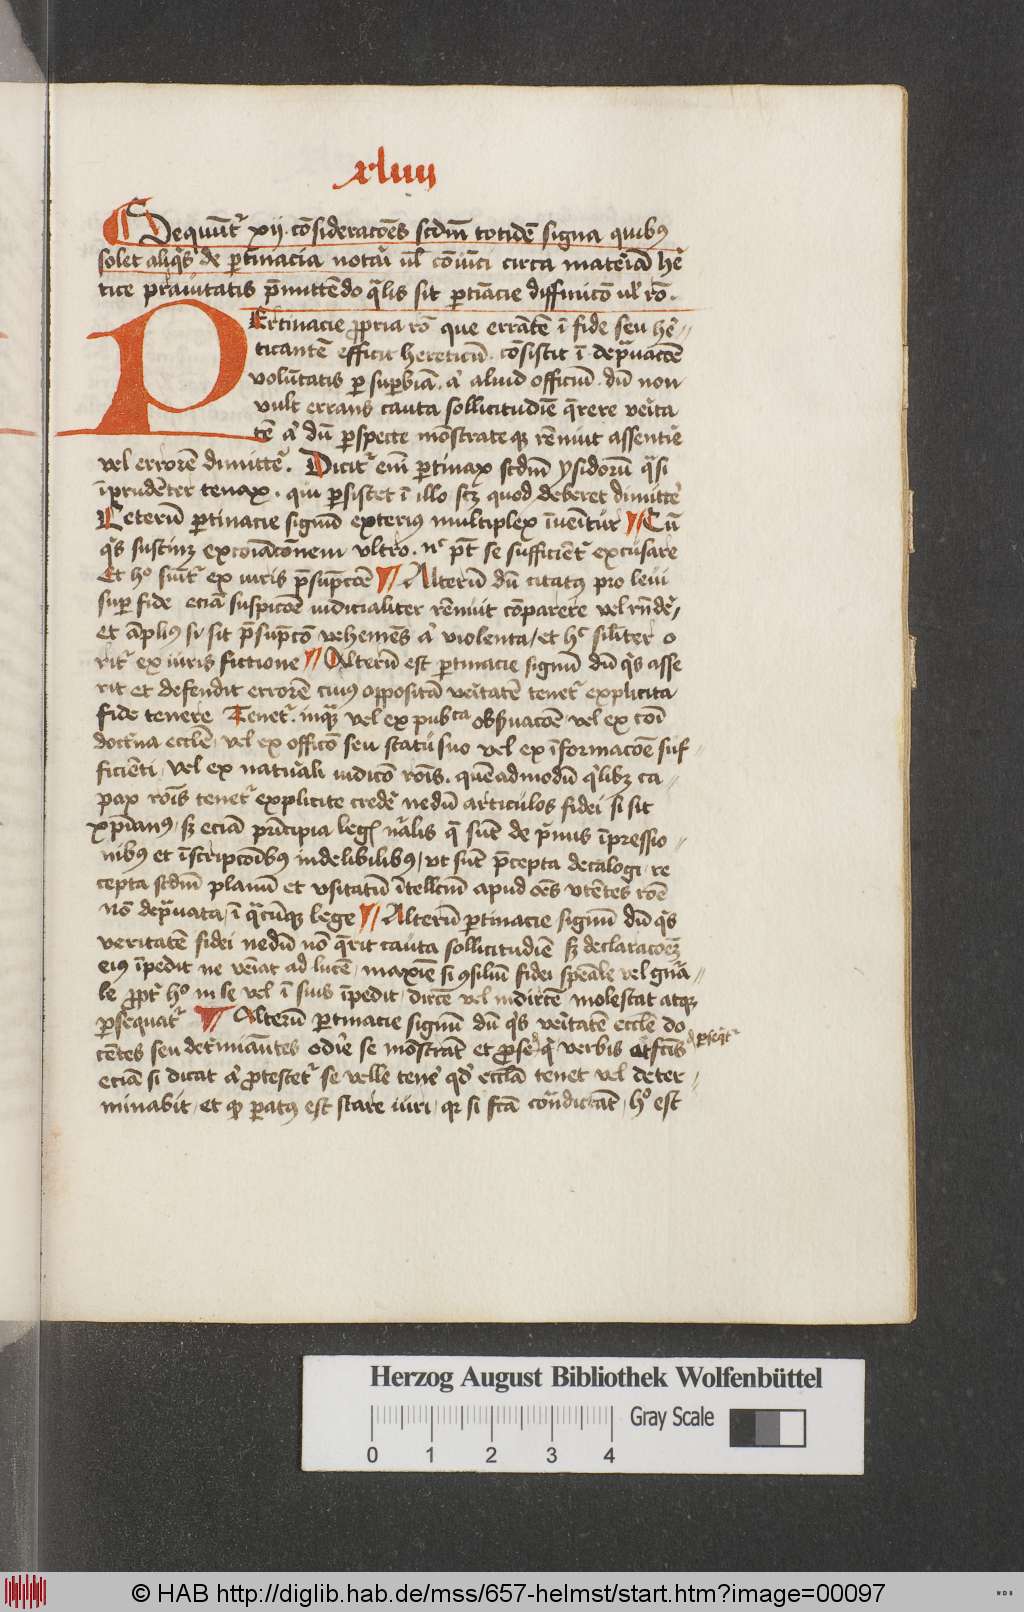 xliiij
Sequūt᷑ xij. cōsideracōēs scdm̄ totidē signa quibꝫ
solet aliqͥs de ꝑtinacia notari ul̄ cōuīci circa materiā he
tice prauitatis p̄mittēdo qͣlis sit ꝑtiācie diffinicō ul̓ rō.
PErtinacie ꝓpria rō que errātē ī fide seu he-
ticantē efficit hereticū. cōsistit ī dep̄uacōē
volūtatis ꝑ suꝑbiā. aͭ aliud officiū. dū non
vult errans cauta sollicitudīē q̄rere verita
tē aͭ dū ꝑspecte mōstrateqꝫ rēnuit assentire
vel errorē dimittē. Dicit᷑ em̄ ꝑtinax scdm̄ ysidorū qͣsi
īprudēter tenax. qui ꝑsistet ī illo scꝫ quod deberet dimittē
Ceterū ꝑtinacie signū exterius multiplex īuenitur Cū
qͥs sustinꝫ excōiacōnem ultro. nͨ p̄t se sufficiēt᷑ excusare
Et hͦ sūt᷑ ex iuris p̄supcōē Alterū dū citatꝰ pro leui
suꝑ fide eciā suspicōē iudicialiter rēnuit cōparere vel rn̄dē/
et āpliꝰ si sit p̄supcō vehemēs aͭ violenta/ et hͨ silīter o
rit᷑ ex iuris fictione Alterū est ꝑtinacie signū dū qͥs asse
rit et defendit errorē cuiꝰ oppositā veritatē tenet᷑ explicita
fide tenere Tenet᷑. inqͣꝫ vel ex pubᶜᵃ obs̄uacōē vel ex cōi
doctͥna ecclē, vel ex officō seu statu suo vel ex īformacōē suf-
ficiēti, vel ex naturali iudicō rōis. quēadmodū qͥlibꝫ ca-
pax rōis tenet᷑ explicite credē nedū articulos fidei si sit
xp̄ianꝰ, sꝫ eciā prīcipia legis nͣlis q̄ sūt de pͥmis īpressio-
nibꝰ et īscripcōibꝰ indelibilibꝰ, ut sūt p̄cepta decalogi re
cepta scdm̄ planū et usitatū ītellcm̄ apud oēs utētes rōē
nō dep̄uata, ī qͣcūqꝫ lege Alterū ꝑtinacie signū dū qͥs
veritatē fidei nedū nō q̄rit cauta sollicitudīē sꝫ declaracōēꝫ
eius īpedit ne veniat ad lucē, maxīē si ꝯsiliū fidei sp̄eale vel gn̄a-
le ꝓpt᷑ hͦ in se vel ī suis īpedit, dircē vel indircē molestat atqꝫ
ꝑsequat᷑ Alterū ꝑtinacie signū dū qͥs veritatē ecclē do
cētes seu det᷑miātes odire se mōstrat et ꝓseqͥ verbis at̄ fcīs ꝑseqͥt᷑
eciā si dicat aͭ ꝓtestet᷑ se velle tenē qd̓ ecclā tenet vel deter-
minabit, et qꝫ paratꝰ est stare iuri, qꝛ si fcā cōtͣdicāt, hͦ est
Herzog August Bibliothek Wolfenbüttel
Gray Scale
0 1 2 3 4
© HAB http://diglib.hab.de/mss/657-helmst/start.htm?image=00097